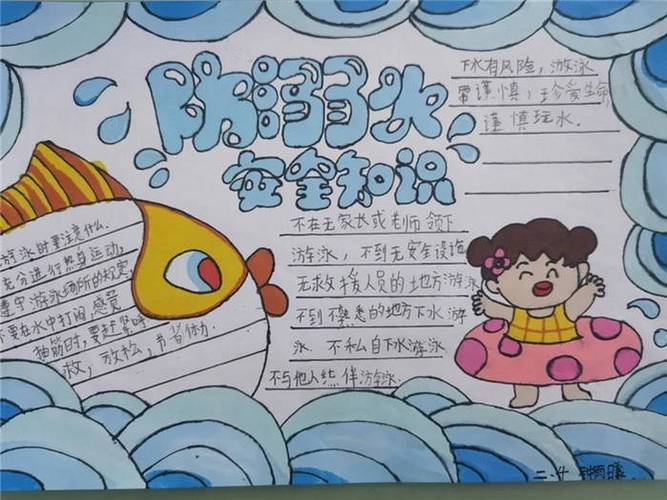 防溺水
安全知识
下水有风险，游泳
需谨慎，珍爱生命，
谨慎玩水.
不在无家长或老师领下
游泳，不到无安全设施
无救援人员的地方游泳
不到不熟悉的地方下水游
泳 不私自下水游泳
不与他人结伴游泳.
游泳时要注意什么.
充分进行热身运动，
遵守游泳场所的规定，
不要在水中打闹
抽筋时，要赶紧呼
救，放松，节省体力.